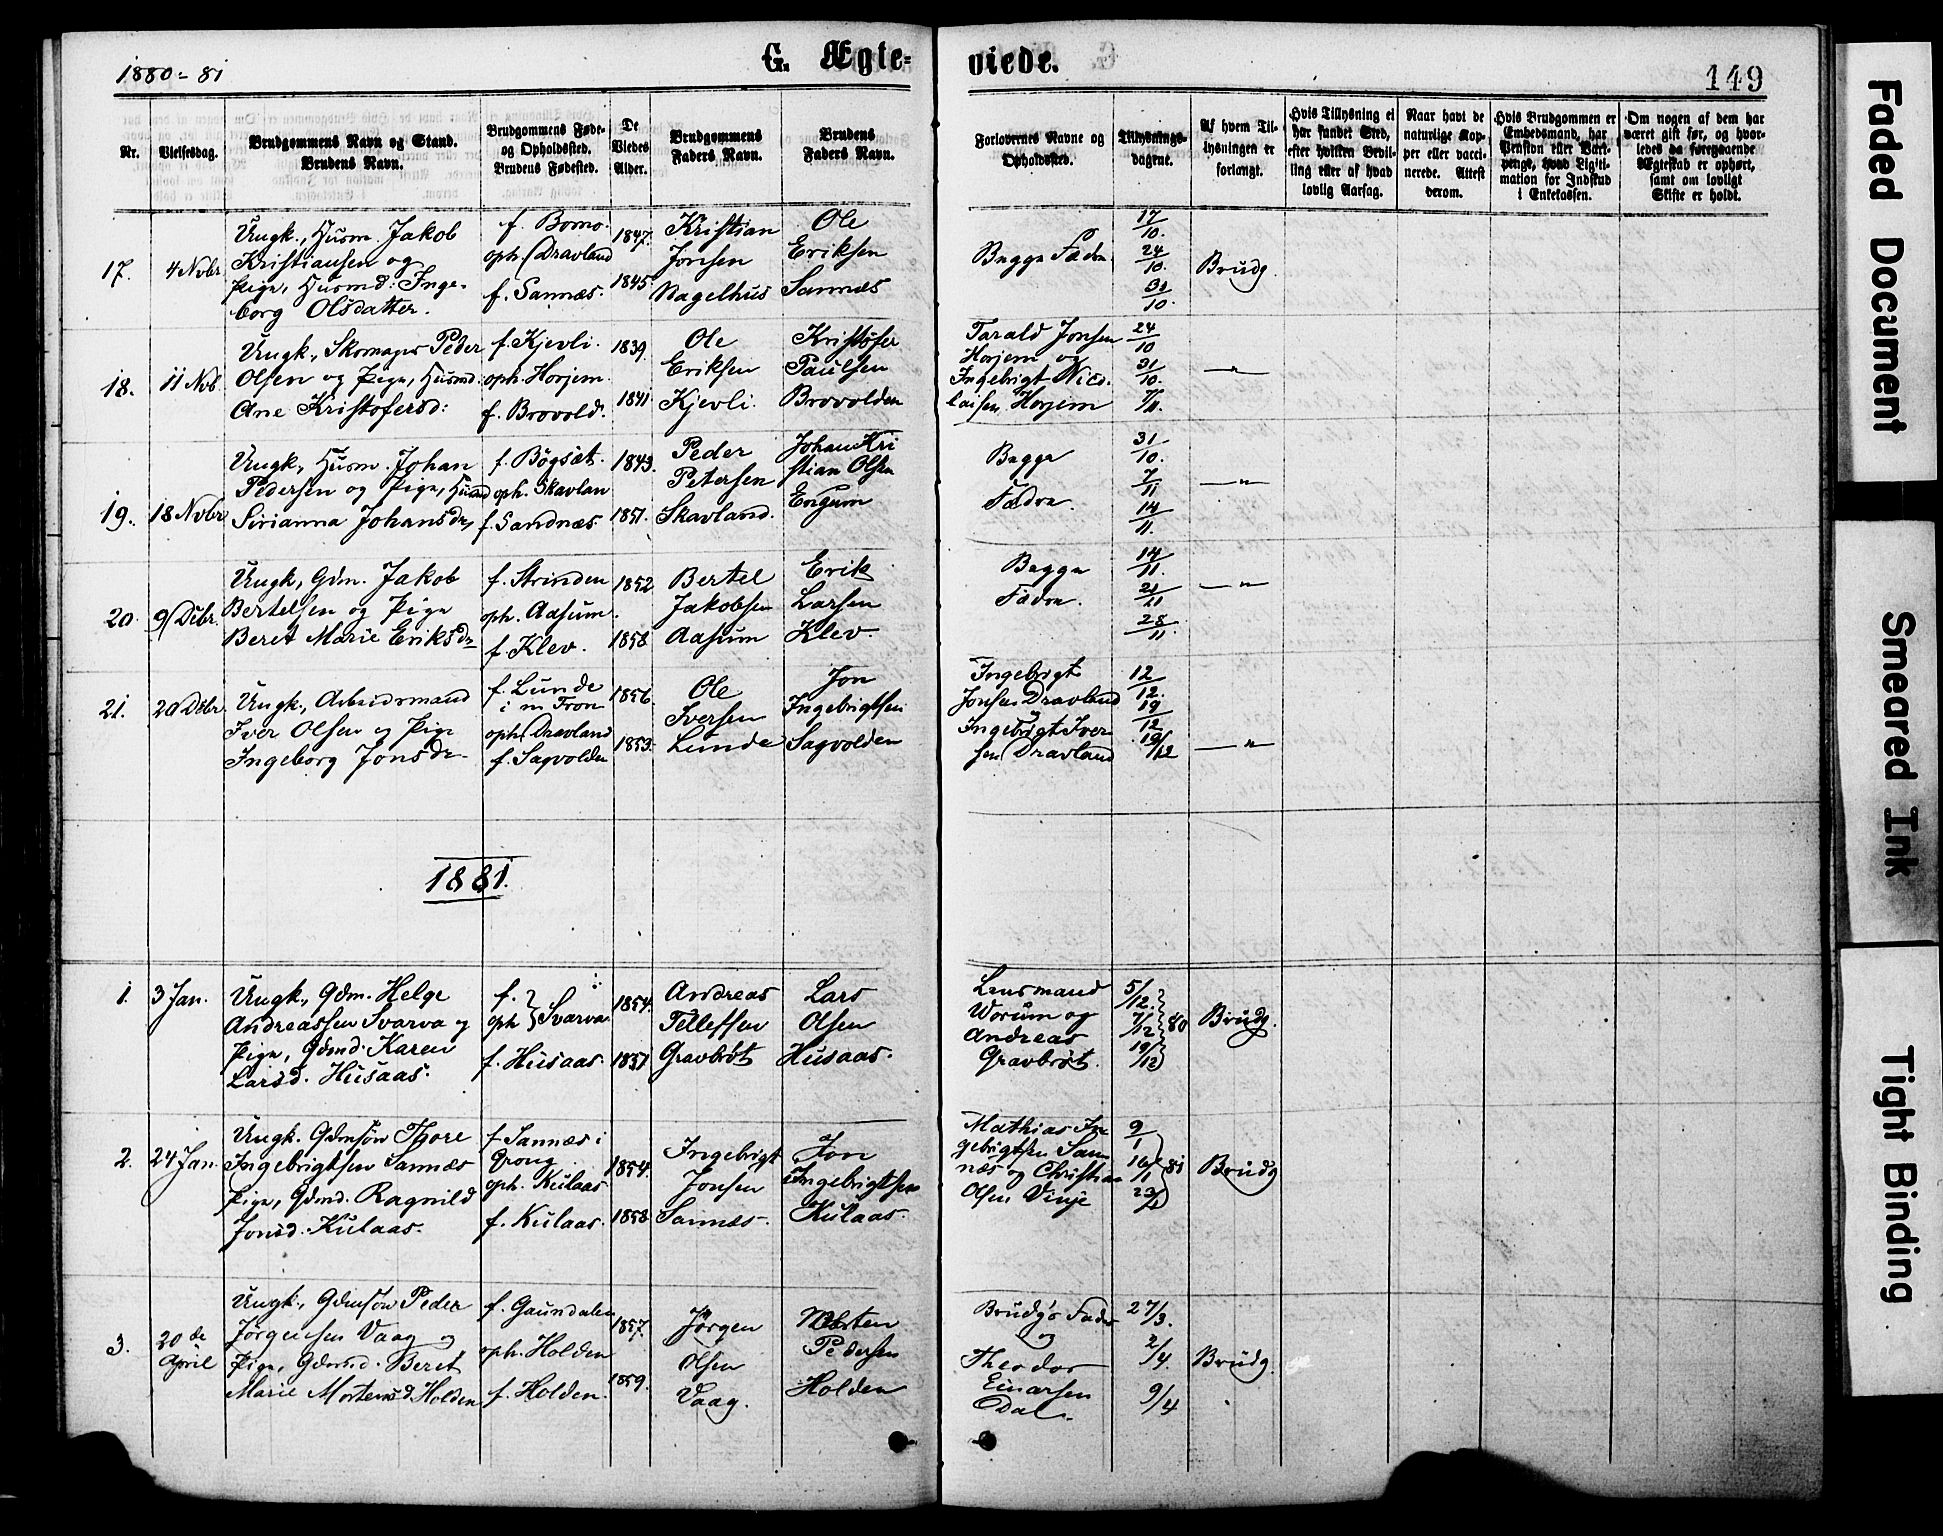 1880-81
G. Ægte-
viede.
149
Nr.
Vielsesdag.
Brudgommens Navn og Stand.
Brudens Navn.
Brudgommens Føde-
og Opholdssted.
Brudens Fødested.
De
Viedes
Alder.
Brudgommens
Faders Navn.
Brudens
Faders Navn.
Forlovernes Navne og
Opholdssted.
Tillysnings-
dagene.
Af hvem Til-
lysningen er
forlangt.
Hvis Tillysning ei
har fundet Sted,
efter hvilken Bevil-
ling eller af hvad
lovlig Aarsag.
Naar havt de
naturlige Kop-
per eller vacci-
nerede. Attest
derom.
Hvis Brudgommen er
Embedsmand, har
Pension eller Vart-
penge, hvad Ligiti-
mation for Indskud
i Enkekassen.
Om nogen af dem har
været gift før, og hvor-
ledes da foregaaende
Ægteskab er ophørt,
samt om lovligt
Skifte er holdt.
17.
4 Novbr
Ungk., Husm. Jakob
Kristiansen og
Pige, Husmd. Inge-
borg Olsdatter.
f. Bomo.
oph. Dravland
f. Sannæs.
1847.
1845.
Kristian
Jonsen
Nagelhus
Ole
Eriksen
Sannæs
Begge Fædre.
17/10.
24/10.
31/10.
Brudg.
18.
11 Nvb.
Ungk., Skomager Peder
Olsen og Pige, Husmd.
Ane Kristofersd:
f. Kjevli.
oph. Horjem.
f. Brovold.
1839.
1841
Ole
Eriksen
Kjevli.
Kristofer
Paulsen
Brovolden
Tarald Jonsen
Horjem og
Ingebrigt Nico-
laisen Horjem
24/10
31/10.
7/11.
—"—
19.
18 Novbr
Ungk., Husm. Johan
Pedersen og Pige, Husmd
Sirianna Johansdr,
f. Bøgsæt.
oph. Skavlan
f. Sandnæs.
1843.
1851.
Peder
Petersen
Skavland.
Johan Kri
stian Olsen
Engum
Begge
Fædre.
31/10.
7/11
14/11.
—"—
20.
9 Debr.
Ungk., Gdm. Jakob
Bertelsen og Pige
Beret Marie Eriksdr
f. Strinden
oph. Aasum.
f. Klev.
1852
1858
Bertel
Jakobsen
Aasum
Erik
Larsen
Klev.
Begge
Fædre.
14/11.
21/11
28/11.
—"—
21.
29 Debr.
Ungk., Arbeidsmand
Iver Olsen og Pige
Ingeborg Jonsdr.
f. Lunde
i n Fron
oph. Dravland
f. Sagvolden
1856.
1853.
Ole
Iversen
Lunde
Jon
Ingebrigtsen
Sagvolden
Ingebrigt
Jonsen Dravland
Ingebrigt Iver
sen Dravland
12/12.
19/12
19/12
—"—
1881.
1.
3 Jan.
Ungk., Gdm. Helge
Andreassen Svarva og
Pige, Gdmd. Karen
Larsd. Husaas.
f.
oph } Svarva
f. Husaas.
1854.
1851
Andreas
Tellefsen
Gravbrøt
Lars
Olsen
Husaas.
Lensmand
Worum og
Andreas
Gravbrøt.
5/12.
7/12
19/12
80
Brudg.
2.
24 Jan.
Ungk. Gdmsøn Thore
Ingebrigtsen Sannæs
Pige, Gdmd. Ragnild
Jonsd. Kulaas.
f. Sannæs i
Grong
oph. Kulaas
f. Kulaas.
1854.
1858
Ingebrigt
Jonsen
Sannæs.
Jon
Ingebrigtsen
Kulaas.
Mathias In
gebrigtsen San
næs og Christian
Olsen Vinje
9/1
16/1
23/1
81
Brudg
3.
20de
April
Ungk., Gdmsøn Peder
Jørgensen Vaag og
Pige, Gdmd. Beret
Marie Mortensd. Holden
f. Gaundalen
oph. Holden
f. Holden.
1857.
1859.
Jørgen
Olsen
Vaag.
Morten
Pedersen
Holden
Brudg's Fader
og
Theodor
Einarsen
Dal.
27/3.
2/4.
9/4
Brudg.
Faded Document
Smeared Ink
Tight Binding